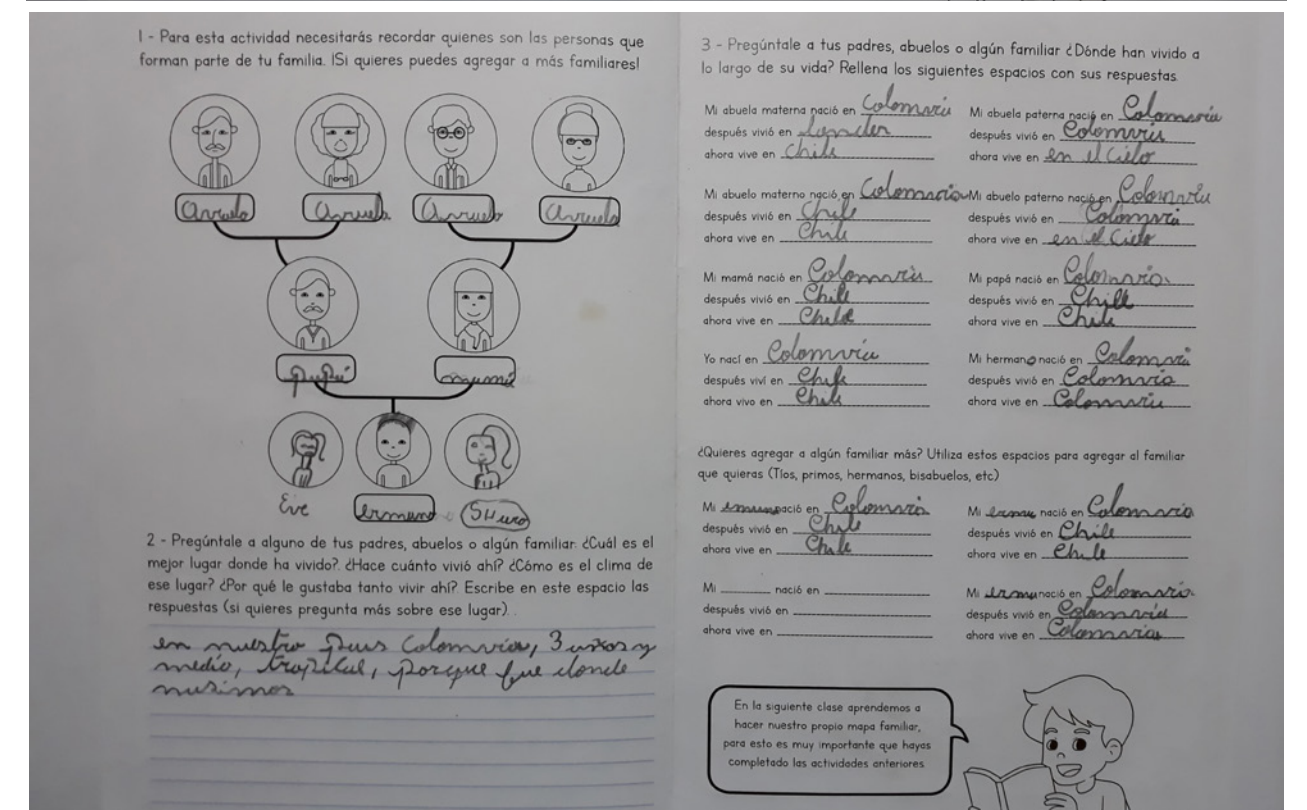 1 - Para esta actividad necesitarás recordar quienes son las personas que
forman parte de tu familia. ¡Si quieres puedes agregar a más familiares!
Avuelo
Avuela
Avuelo
Avuela
papá
mamá
Eve
ermano
2 - Pregúntale a alguno de tus padres, abuelos o algún familiar: ¿Cuál es el
mejor lugar donde ha vivido?. ¿Hace cuánto vivió ahí? ¿Cómo es el clima de
ese lugar? ¿Por qué le gustaba tanto vivir ahí? Escribe en este espacio las
respuestas (si quieres pregunta más sobre ese lugar).
en nuestro Colomvia, 3 y
medio, porque fue donde
3 - Pregúntale a tus padres, abuelos o algún familiar ¿Dónde han vivido a
lo largo de su vida? Rellena los siguientes espacios con sus respuestas.
Mi abuela materna nació en Colomvia
después vivió en
ahora vive en Chile
Mi abuela paterna nació en Colomvia
después vivió en Colomvia
ahora vive en en el Cielo
Mi abuelo materno nació en Colomvia
después vivió en Chile
ahora vive en Chile
Mi abuelo paterno nació en Colomvia
después vivió en Colomvia
ahora vive en en el Cielo
Mi mamá nació en Colomvia
después vivió en Chile
ahora vive en Chile
Mi papá nació en Colomvia
después vivió en Chile
ahora vive en Chile
Yo nací en Colomvia
después viví en Chile
ahora vivo en Chile
Mi hermano nació en Colomvia
después vivió en Colomvia
ahora vive en Colomvia
¿Quieres agregar a algún familiar más? Utiliza estos espacios para agregar al familiar
que quieras (Tíos, primos, hermanos, bisabuelos, etc)
Mi nació en Colomvia
después vivió en Chile
ahora vive en Chile
Mi nació en Colomvia
después vivió en Chile
ahora vive en Chile
Mi nació en
después vivió en
ahora vive en
Mi nació en Colomvia
después vivió en Colomvia
ahora vive en Colomvia
En la siguiente clase aprendemos a
hacer nuestro propio mapa familiar,
para esto es muy importante que hayas
completado las actividades anteriores